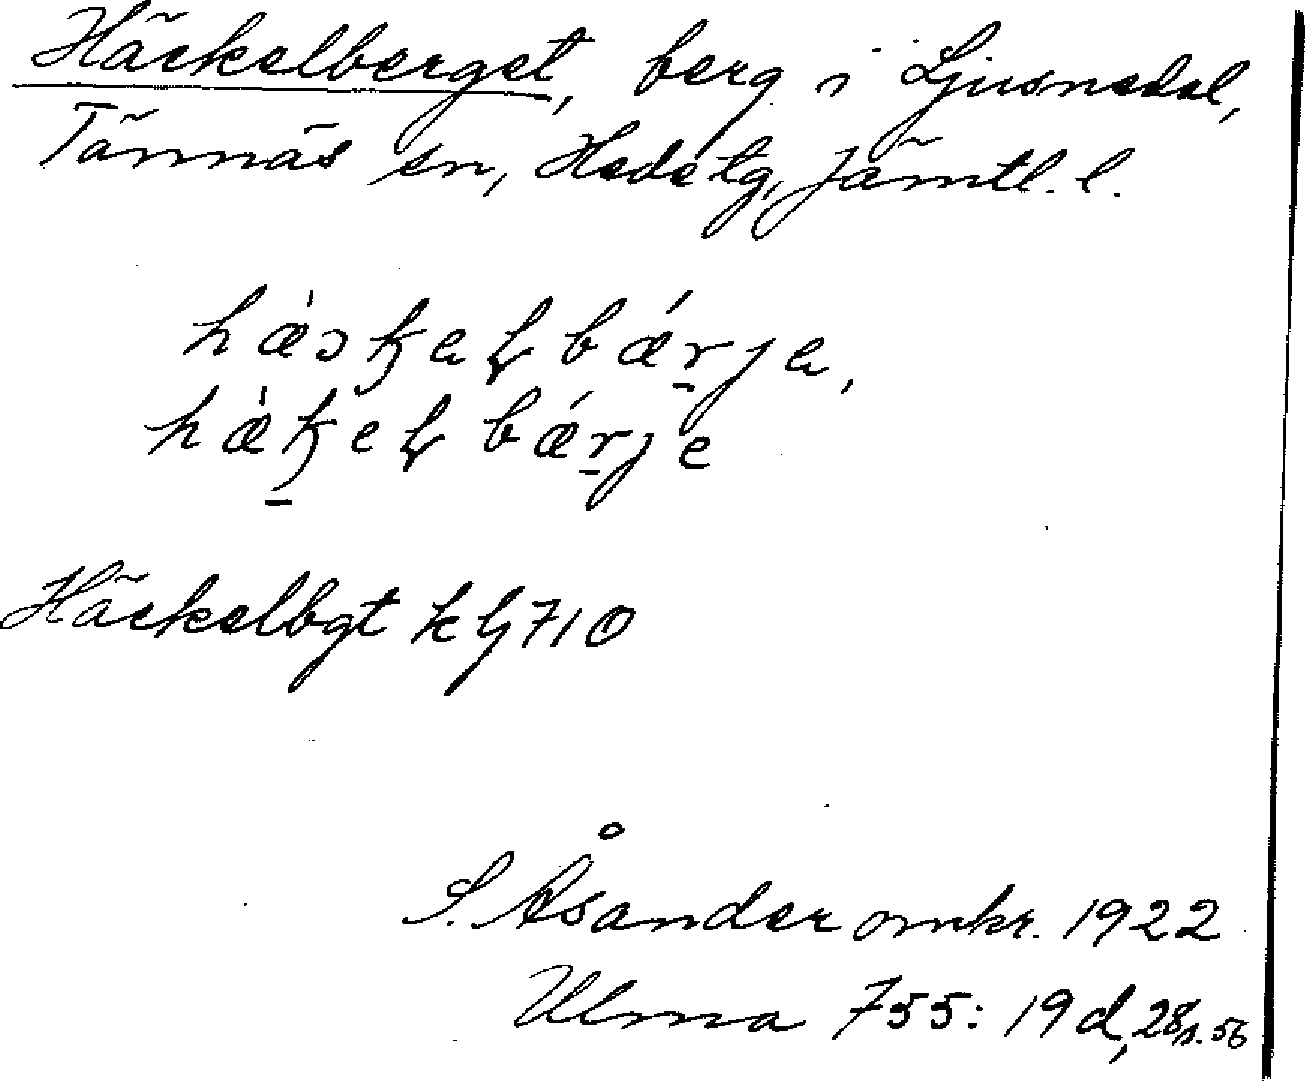 Häckelberget, berg i Ljusnedal,
Tännäs sn, Hede tg, Jämtl. l.
Häckelbgt k Lj 710
S. Åsander omkr. 1922
Ulma 755: 19 d, 28 s. 56